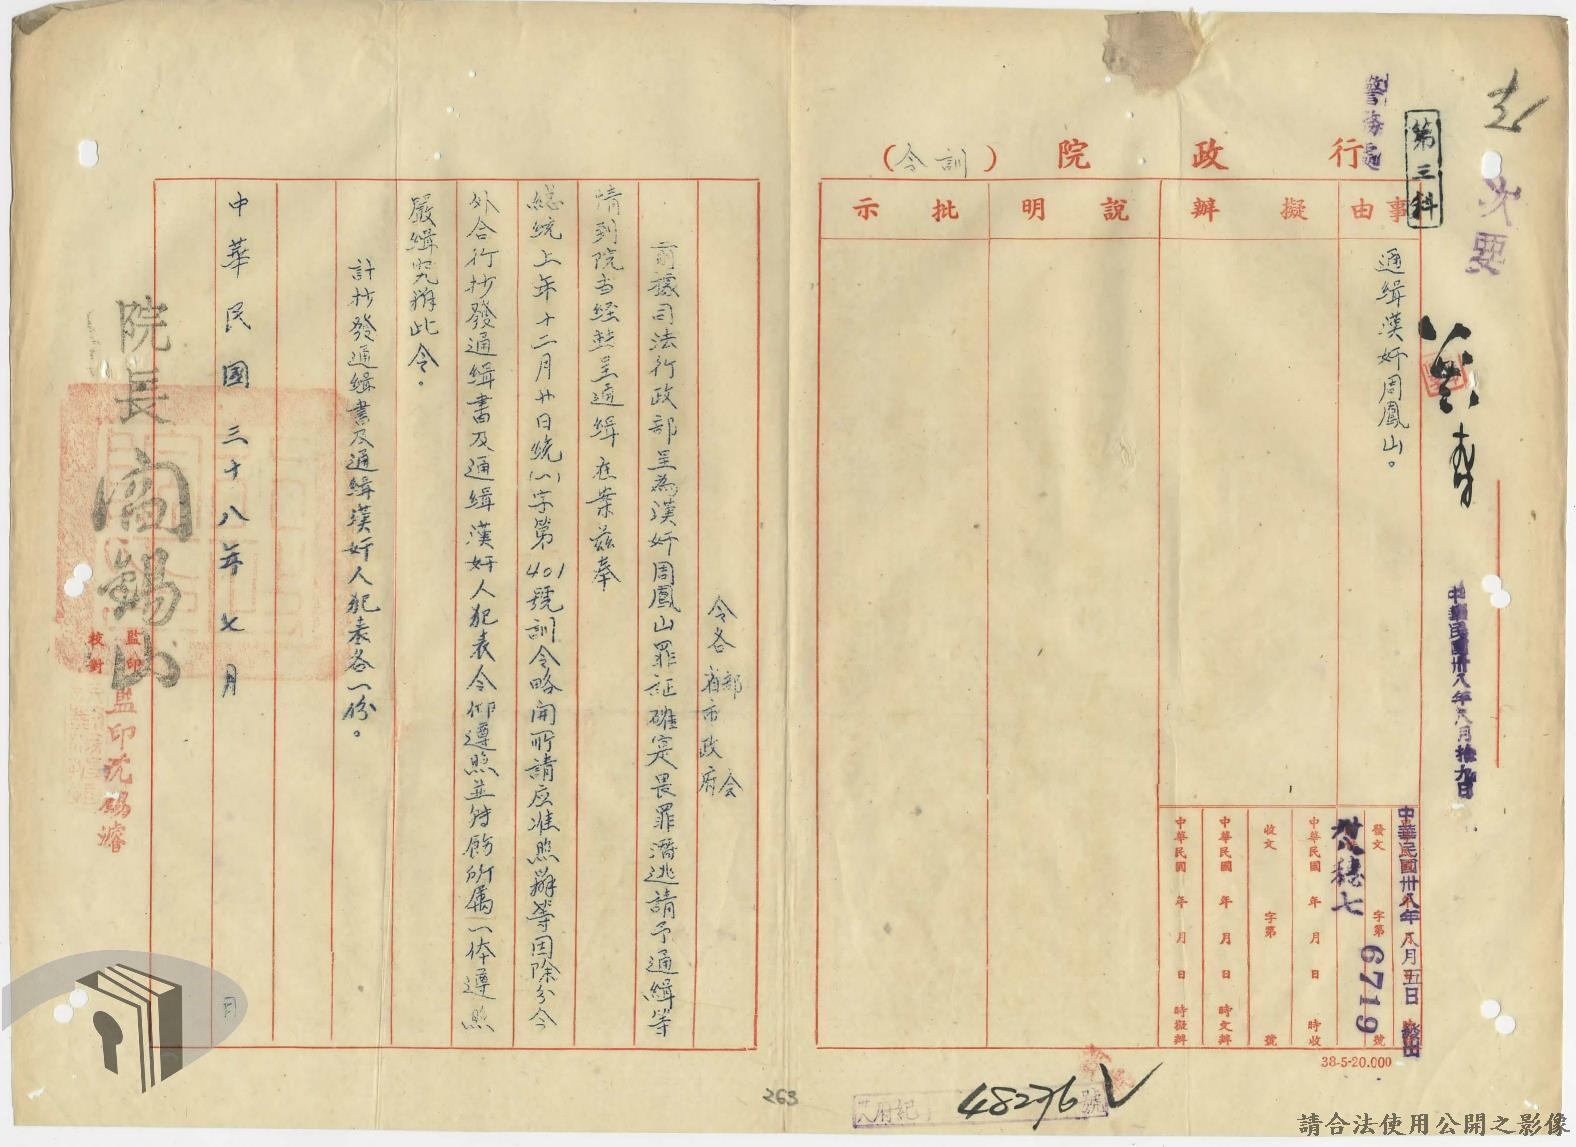 行政院（訓令）
第三科
次要
事由
擬辦
說明
批示
通緝漢奸周鳳山。
中華民國卅八年八月拾九日
中華民國卅八年八月五日
發文 字第 號
6719
中華民國 年 月 日 時收
收文 字第 號
中華民國 年 月 日 時交辦
中華民國 年 月 日 時擬辦
38-5-20.000
48276
令各省市政府
部会
前據司法行政部呈為漢奸周鳳山罪証確实畏罪潛逃請予通緝等
情到院当経轉呈通緝在案茲奉
總統上年十二月廿日統(一)字第401號訓令略開所請应准照辦等因除分令
外合行抄發通緝書及通緝漢奸人犯表令仰遵照並轉飭所屬一体遵照
嚴緝究辦此令。
計抄發通緝書及通緝漢奸人犯表各一份。
中華民國三十八年七月 日
院長閻錫山
監印
校對
監印沈錫濬
263
請合法使用公開之影像